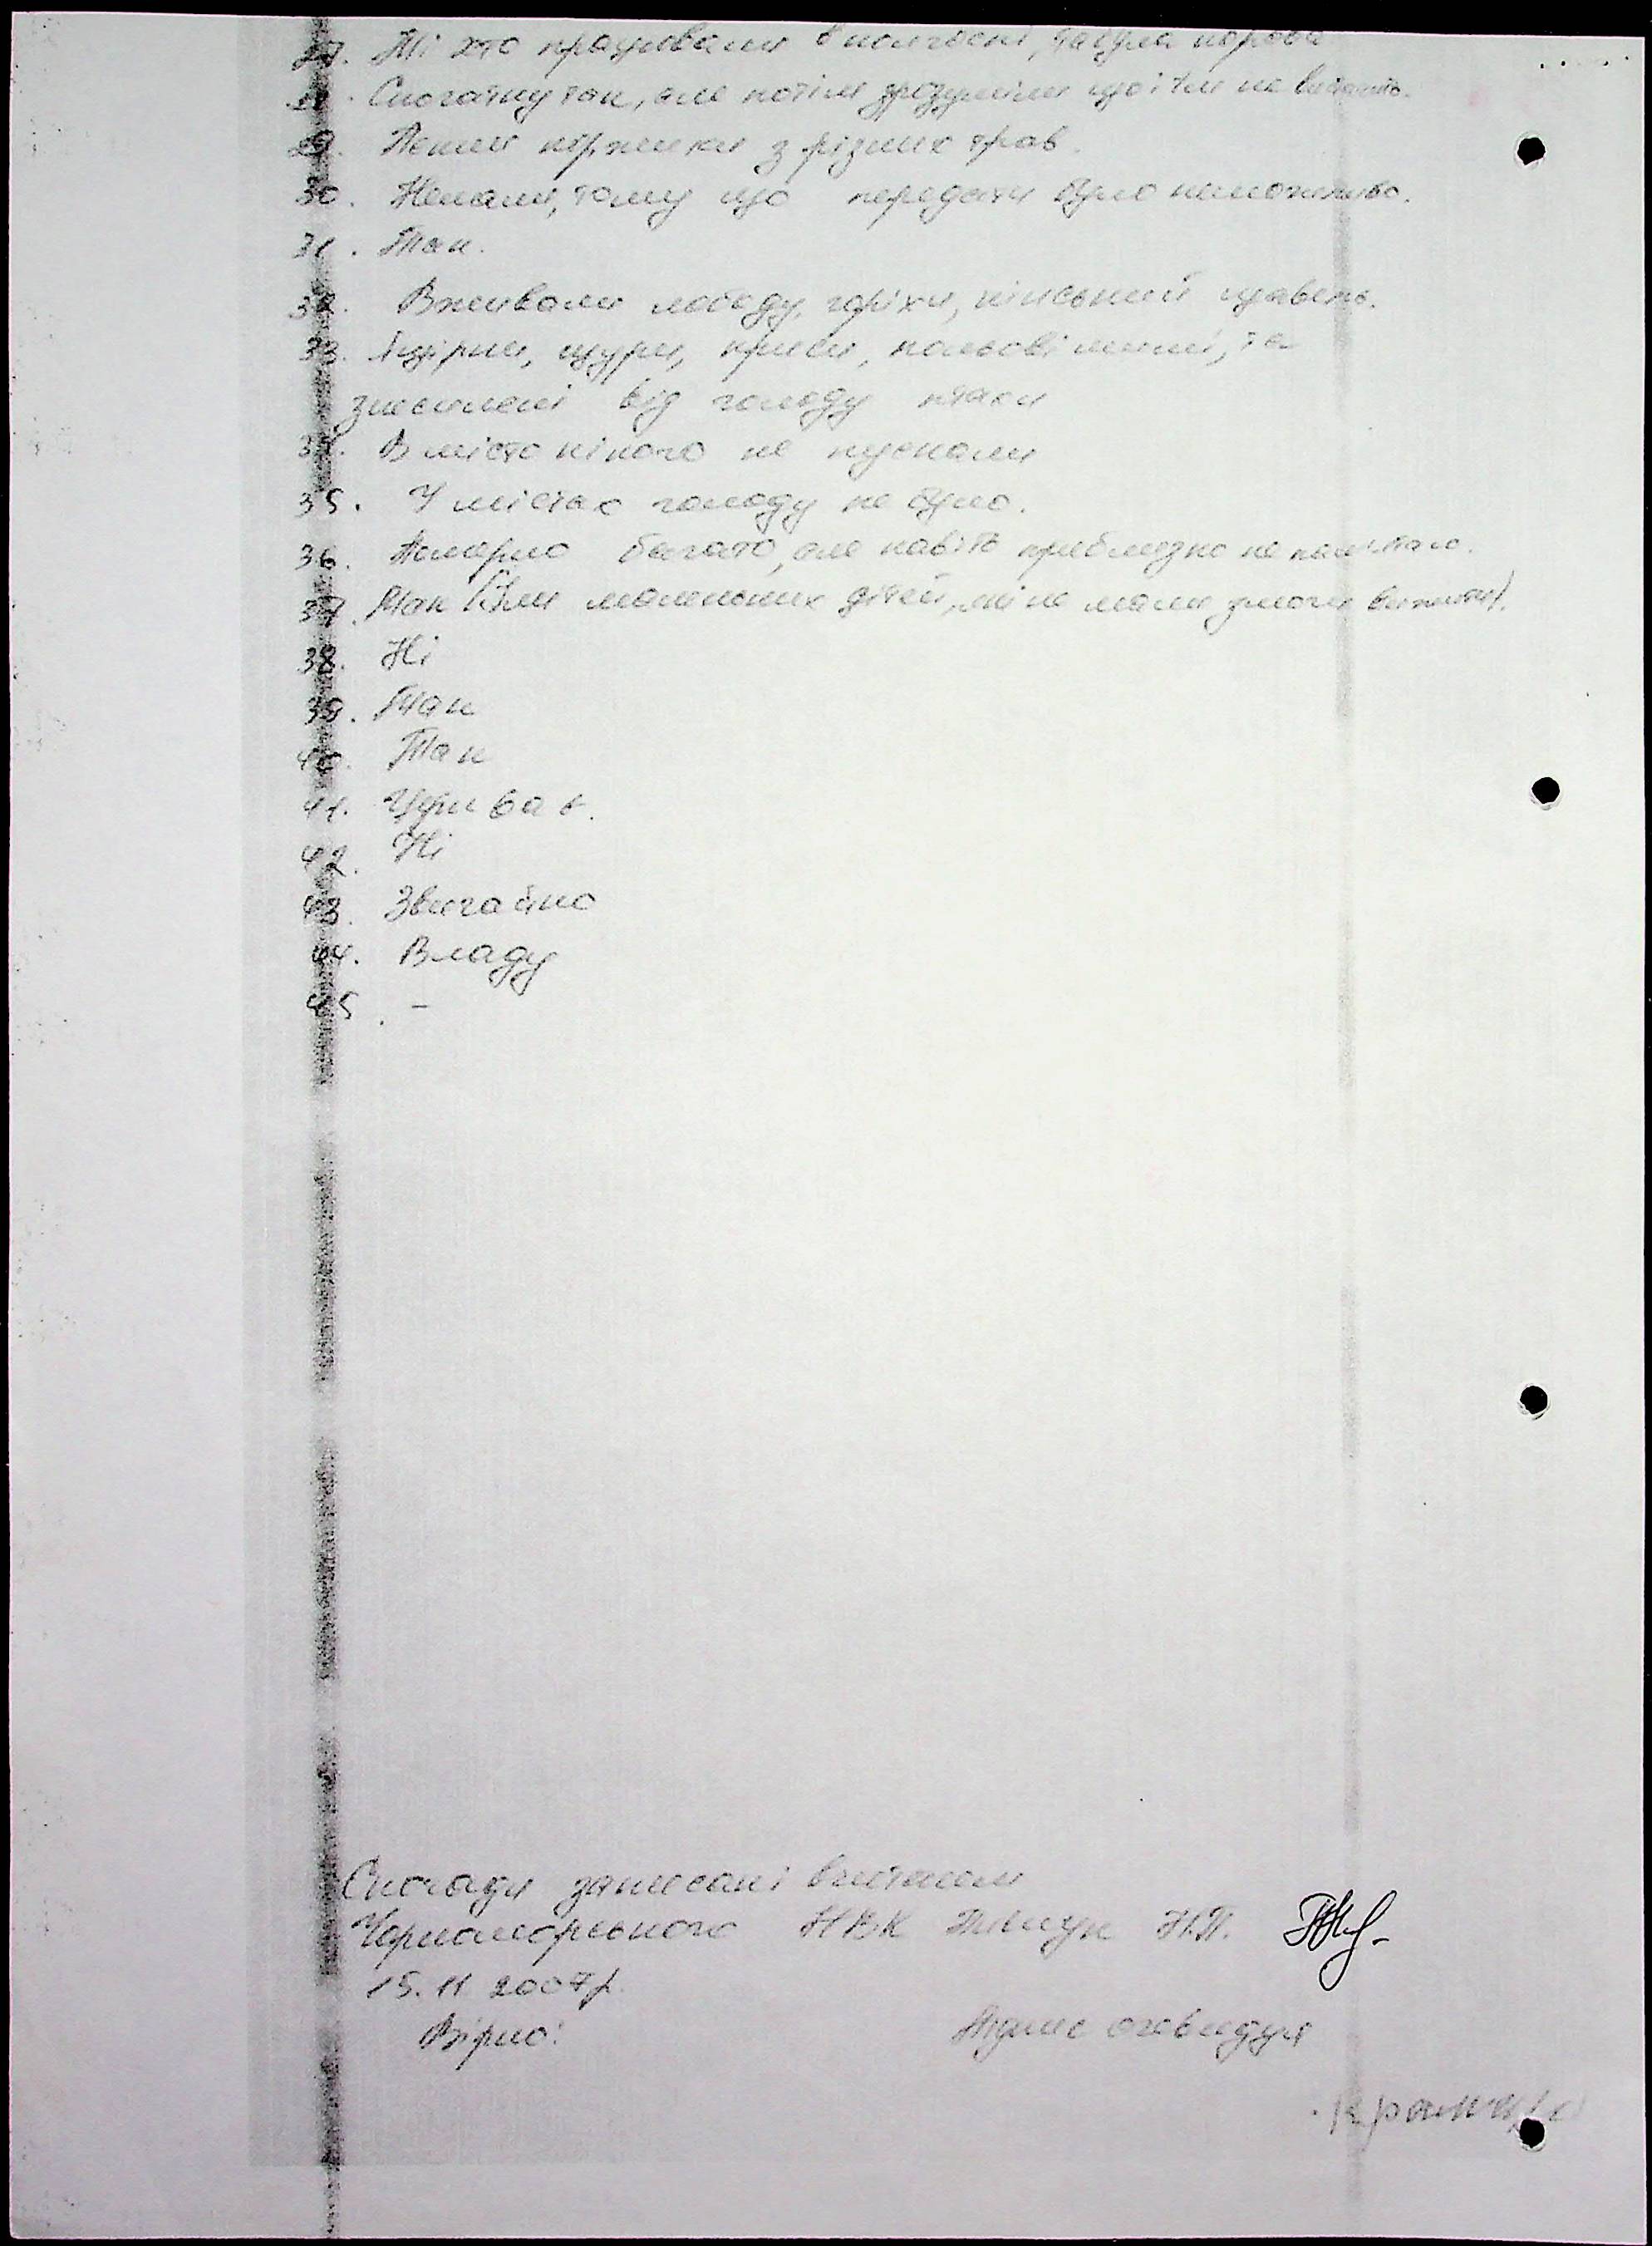 27. Ті хто працювали в колгоспі, та була корова
28. Спочатку так, але потім зрозуміли що їм не вистачить.
29. Пекли коржики з різних трав.
30. Немали, тому що передати було неможливо.
31. Так.
32. Вживали лободу, горіхи, кінський щавель.
33. Ящірки, щури, криси, польові миші, та
знесилені від голоду птахи
34. В місто нікого не пускали
35. У містах голоду не було.
36. Померло багато, але навіть приблизно не памʼятаю.
37. Так (їли маленьких дітей, які не мали змоги вижити).
38. Ні
39. Так
40. Так
41. Церква
42. Ні
43. Звичайно
44. Владу
45. -
Спогади записані вчителем
Чорноморського НВК Н.П.
15.11.2007р.
Вірно: Підпис очевидця